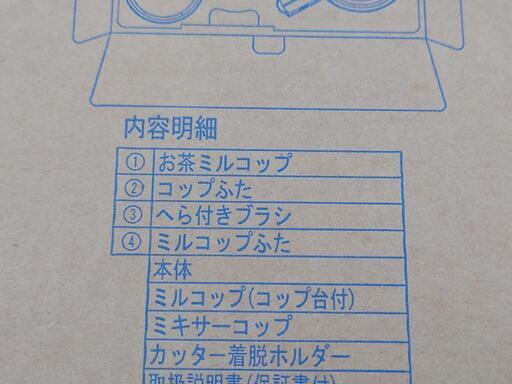 内容明細
① お茶ミルコップ
② コップふた
③ へら付きブラシ
④ ミルコップふた
本体
ミルコップ(コップ台付)
ミキサーコップ
カッター着脱ホルダー
取扱説明書(保証書付)